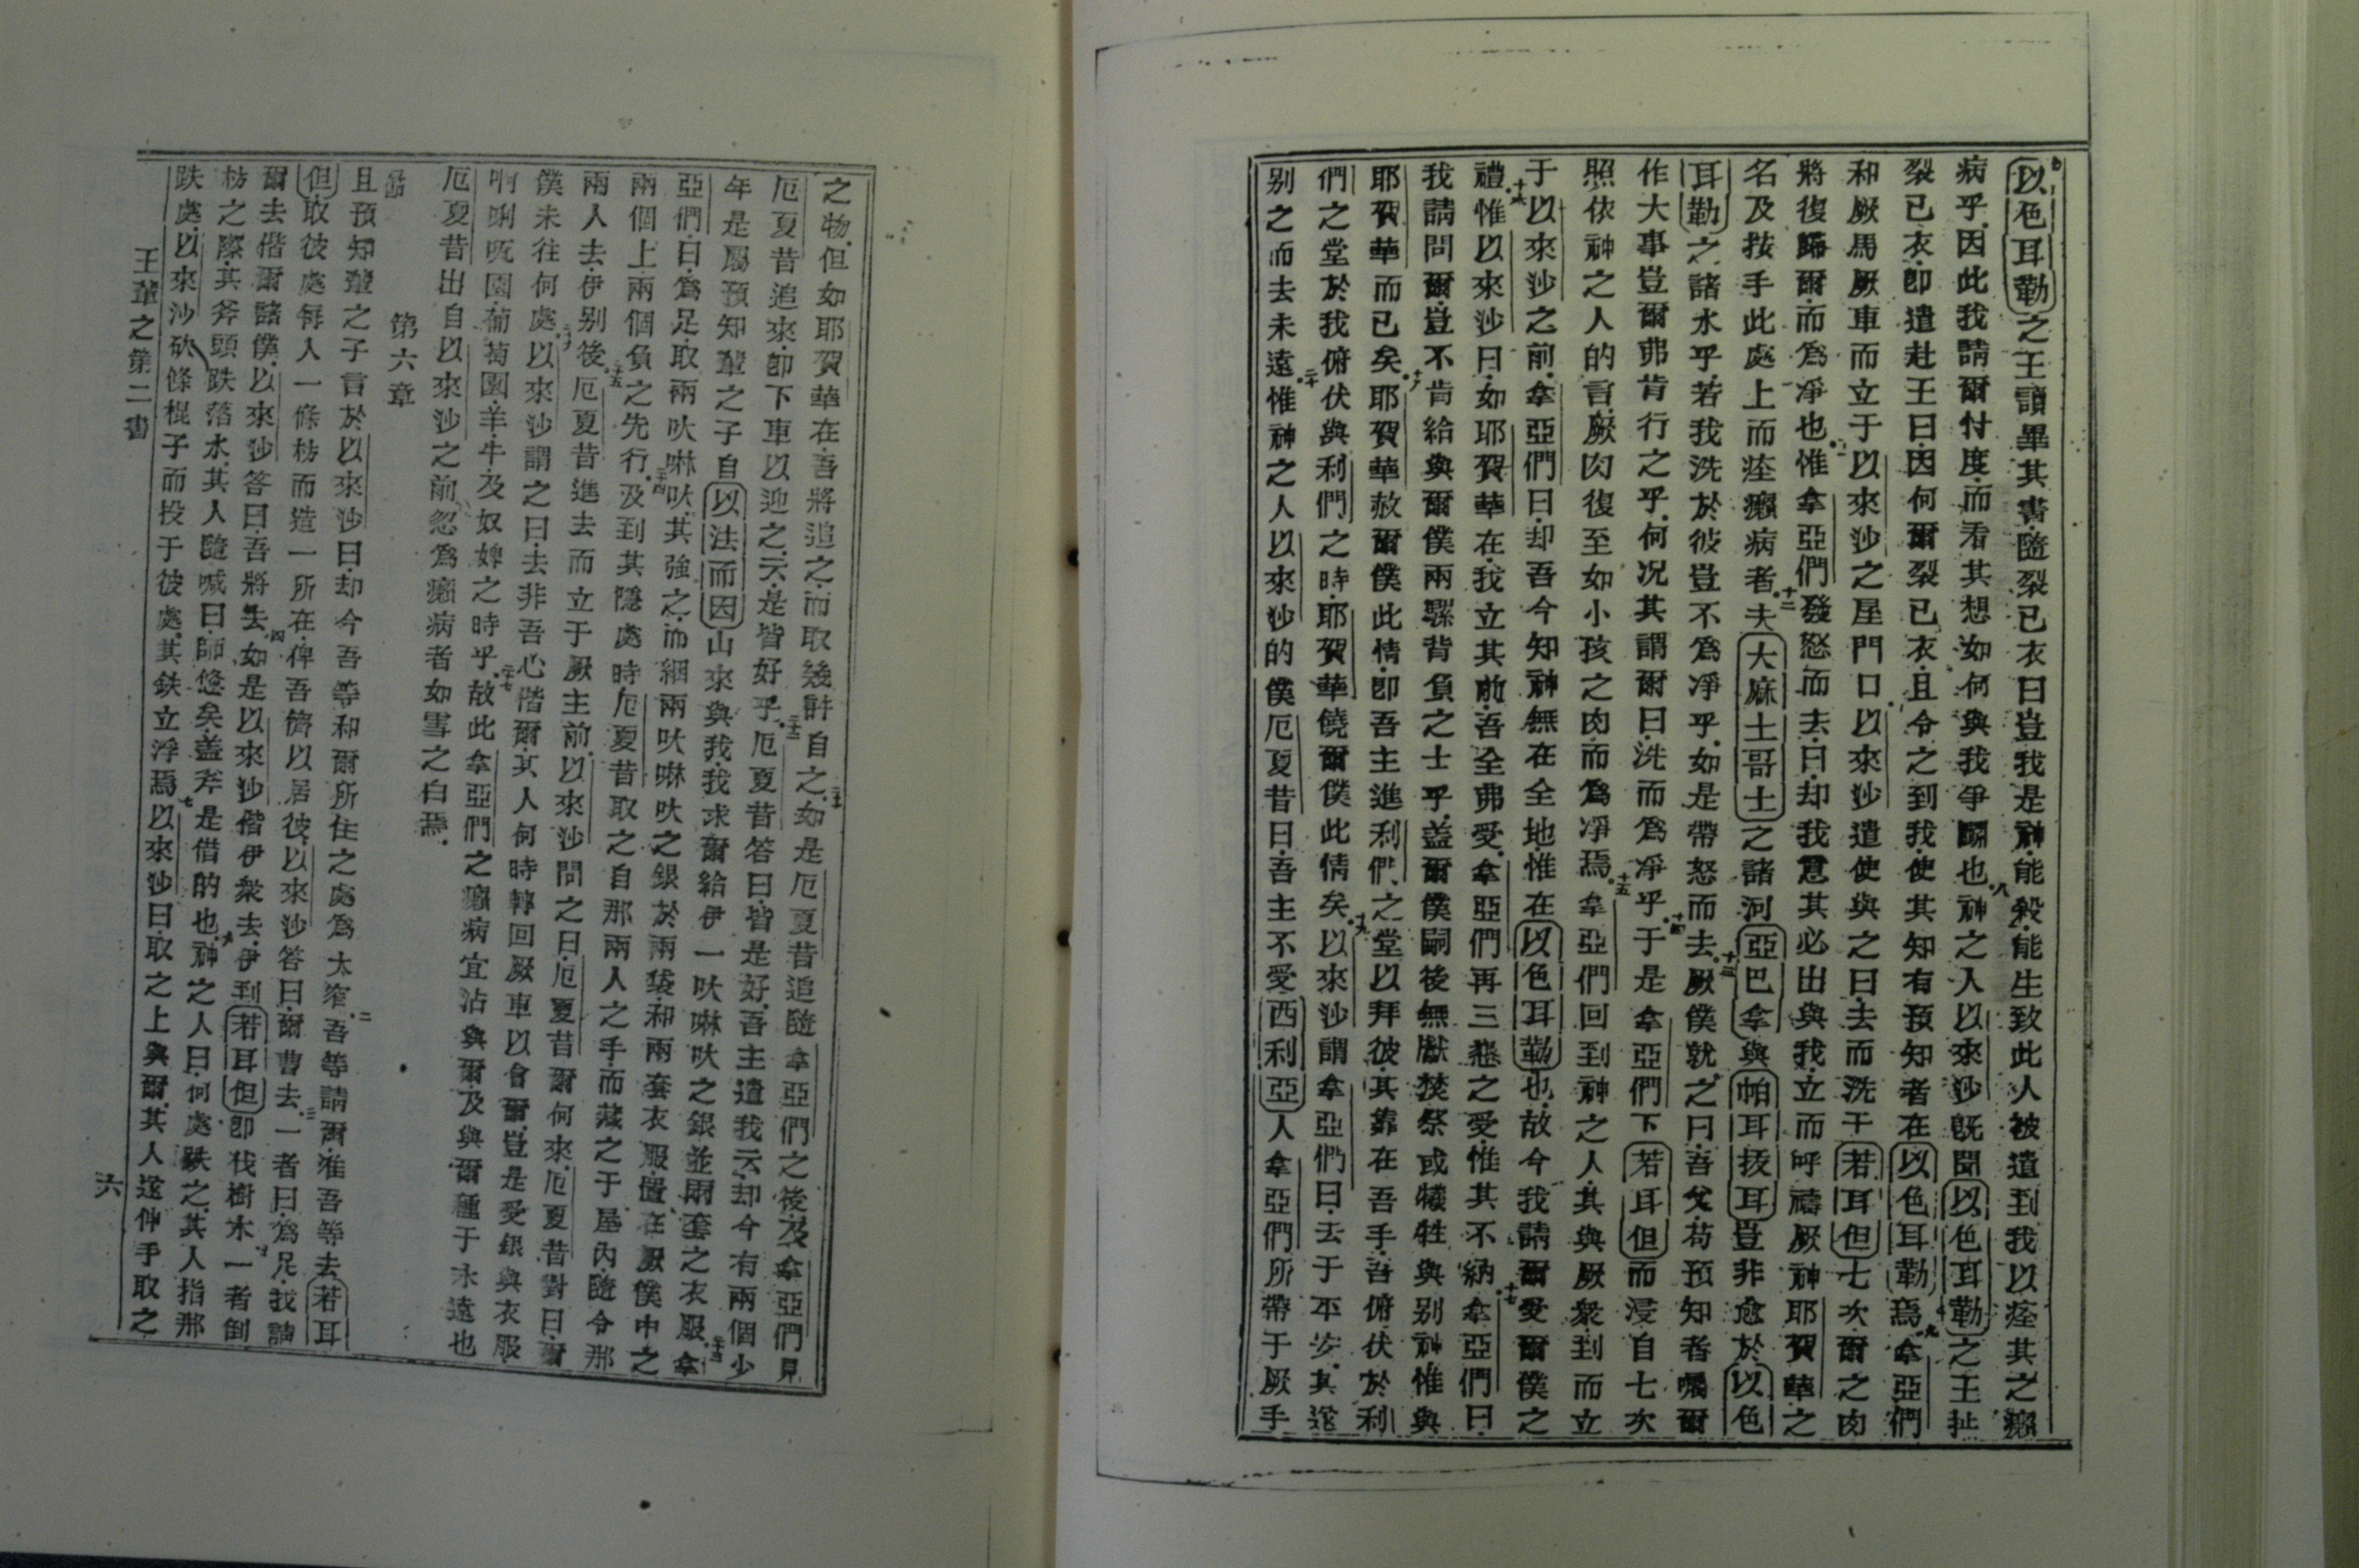 以色耳勒之王讀畢其書隨裂已衣曰豈我是神能殺能生致此人被遣到我以痊其之癩
病乎因此我請爾忖度而看其想如何與我爭鬬也八神之人以來沙既聞以色耳勒之王扯
裂已衣卽遣赴王曰因何爾裂已衣且令之到我使其知有預知者在以色耳勒焉九拿亞們
和厥馬厥車而立于以來沙之屋門口十以來沙遣使與之曰去而洗于若耳但七次爾之肉
將復歸爾而爲淨也十一惟拿亞們發怒而去曰却我意其必出與我立而呼禱厥神耶賀華之
名及按手此處上而痊癩病者十二夫大麻士哥士之諸河亞巴拿與帕耳抜耳豈非愈於以色
耳勒之諸水乎若我洗於彼豈不爲淨乎如是帶怒而去十三厥僕就之曰吾父若預知者囑爾
作大事豈爾弗肯行之乎何况其謂爾曰洗而爲淨乎十四于是拿亞們下若耳但而浸自七次
照依神之人的言厥肉復至如小孩之肉而爲淨焉十五拿亞們回到神之人其與厥衆到而立
于以來沙之前拿亞們曰却吾今知神無在全地惟在以色耳勒也故今我請爾受爾僕之
禮十六惟以來沙曰如耶賀華在我立其前吾全弗受拿亞們再三懇之受惟其不納十七拿亞們曰
我請問爾豈不肯給與爾僕兩騾背負之土乎蓋爾僕嗣後無獻焚祭或犧牲與别神惟與
耶賀華而已矣十八耶賀華赦爾僕此情卽吾主進利們之堂以拜彼其靠在吾手吾俯伏於利
們之堂於我俯伏與利們之時耶賀華饒爾僕此情矣十九以來沙謂拿亞們曰去于平安其遂
别之而去未遠二十惟神之人以來沙的僕厄夏昔曰吾主不受西利亞人拿亞們所帶于厥手
之物但如耶賀華在吾將追之而取幾許自之二十一如是厄夏昔追隨拿亞們之後及拿亞們見
厄夏昔追來卽下車以迎之云是皆好乎二十二厄夏昔答曰皆是好吾主遣我云却今有兩個少
年是屬預知輩之子自以法而因山來與我我求爾給伊一吠啉吠之銀並兩套之衣服二十三拿
亞們曰爲足取兩吠啉吠其強之而綑兩吠啉吠之銀於兩袋和兩套衣服置在厥僕中之
兩個上兩個負之先行二十四及到其隱處時厄夏昔取之自那兩人之手而藏之于屋內隨令那
兩人去伊别後二十五厄夏昔進去而立于厥主前以來沙問之曰厄夏昔爾何來厄夏昔對曰爾
僕未往何處二十六以來沙謂之曰去非吾心偕爾其人何時轉回厥車以會爾豈是受銀與衣服
啊唎㕞園葡萄園羊牛及奴婢之時乎二十七故此拿亞們之癩病宜沾與爾及與爾種于永遠也
厄夏昔出自以來沙之前忽爲癩病者如雪之白焉
第六章
且預知輩之子言於以來沙曰却今吾等和爾所住之處爲太窄二吾等請爾准吾等去若耳
但取彼處每人一條枋而造一所在俾吾儕以居彼以來沙答曰爾曹去三一者曰爲足我請
爾去偕爾諸僕以來沙答曰吾將去四如是以來沙偕伊衆去伊到若耳但卽伐樹木五一者倒
枋之際其斧頭跌落水其人隨喊曰師悠矣蓋斧是借的也六神之人曰何處跌之其人指那
跌處以來沙砍條棍子而投于彼處其鉄立浮焉七以來沙曰取之上與爾其人遂伸手取之
王輩之第二書
六